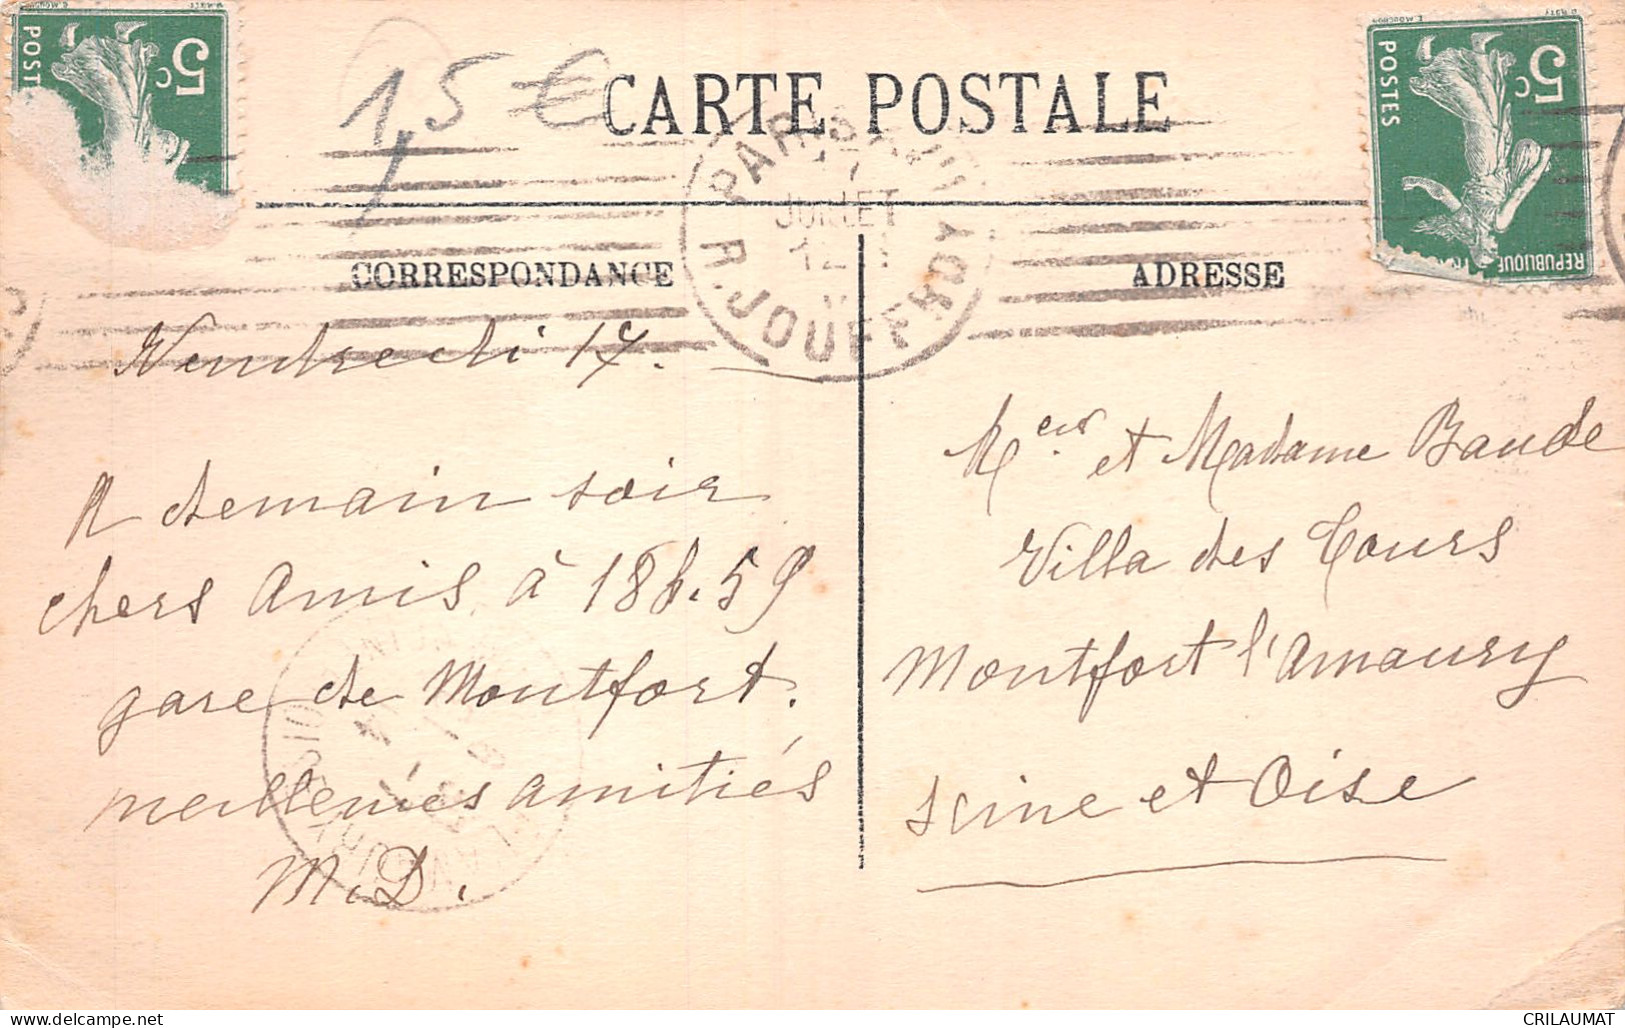 5c
POSTES
5c
POSTES
REPUBLIQUE
1,5 €
CARTE POSTALE
PARIS
17
JUILLET
12
R. JOUFFROY
CORRESPONDANCE
ADRESSE
Vendredi 17.
A demain soir
chers Amis à 18h.59
gare de Montfort.
meilleures amitiés
M. D.
Mr et Madame Baude
Villa des Tours
Montfort l'Amaury
Seine et Oise
delcampe.net
CRILAUMAT